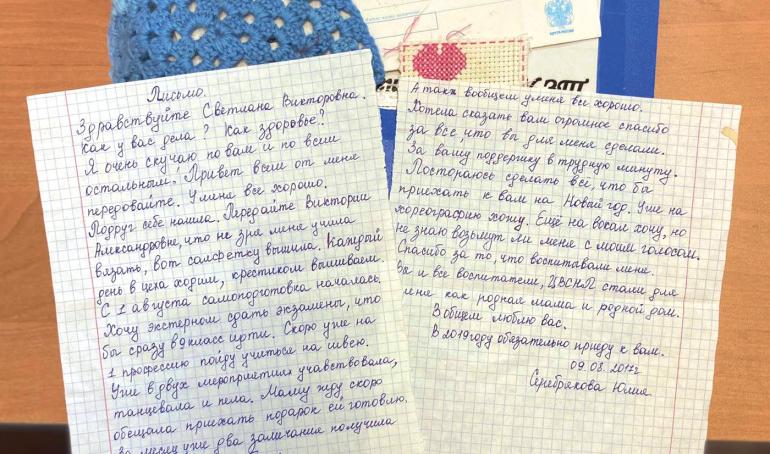 Письмо.
Здравствуйте Светлана Викторовна.
Как у вас дела? Как здоровье?
Я очень скучаю по вам и по всем
остальным! Привет всем от меня
передовайте. У меня все хорошо.
Подруг себе нашла. Передайте Виктории
Александровне, что не зря меня учила
вязать, вот салфетку вышила. Каждый
день в цеха ходим, крестиком вышиваем.
С 1 августа самоподготовка началась.
Хочу экстерном сдать экзамены, что
бы сразу в 9 класс идти. Скоро уже на
1 профессию пойду учиться на швею.
Уже в двух мероприятиях учавствовала,
танцевала и пела. Маму жду скоро
обещала приехать подарок ей готовлю.
За месяц уже два замечания получила
А так вообщем у меня вы хорошо.
Хотела сказать вам огромное спасибо
за все, что вы для меня сделали.
За вашу поддержку в трудную минуту.
Постораюсь сделать все, что ба
приехать к вам на Новый год. Уже на
хореографию хожу. Ещё на вокал хочу, но
не знаю возьмут ли меня с моим голосом.
Спасибо за то, что воспитывали меня.
Вы и все воспитатели, ЦВСНП стали для
меня как родная мама и родной дом.
В общем люблю вас.
В 2019 году обязательно приеду к вам.
09.08.2017г
Серебрякова Юлия.